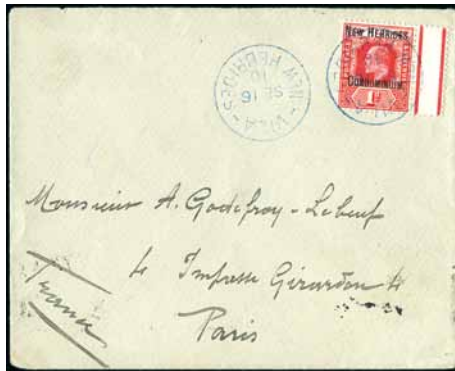 NEW HEBRIDES
CONDOMINIUM.
1d
VILA
SE 16
10
NEW HEBRIDES
Monsieur A. Godefroy-Lebeuf
4 Impasse Girardon 4
Paris
France